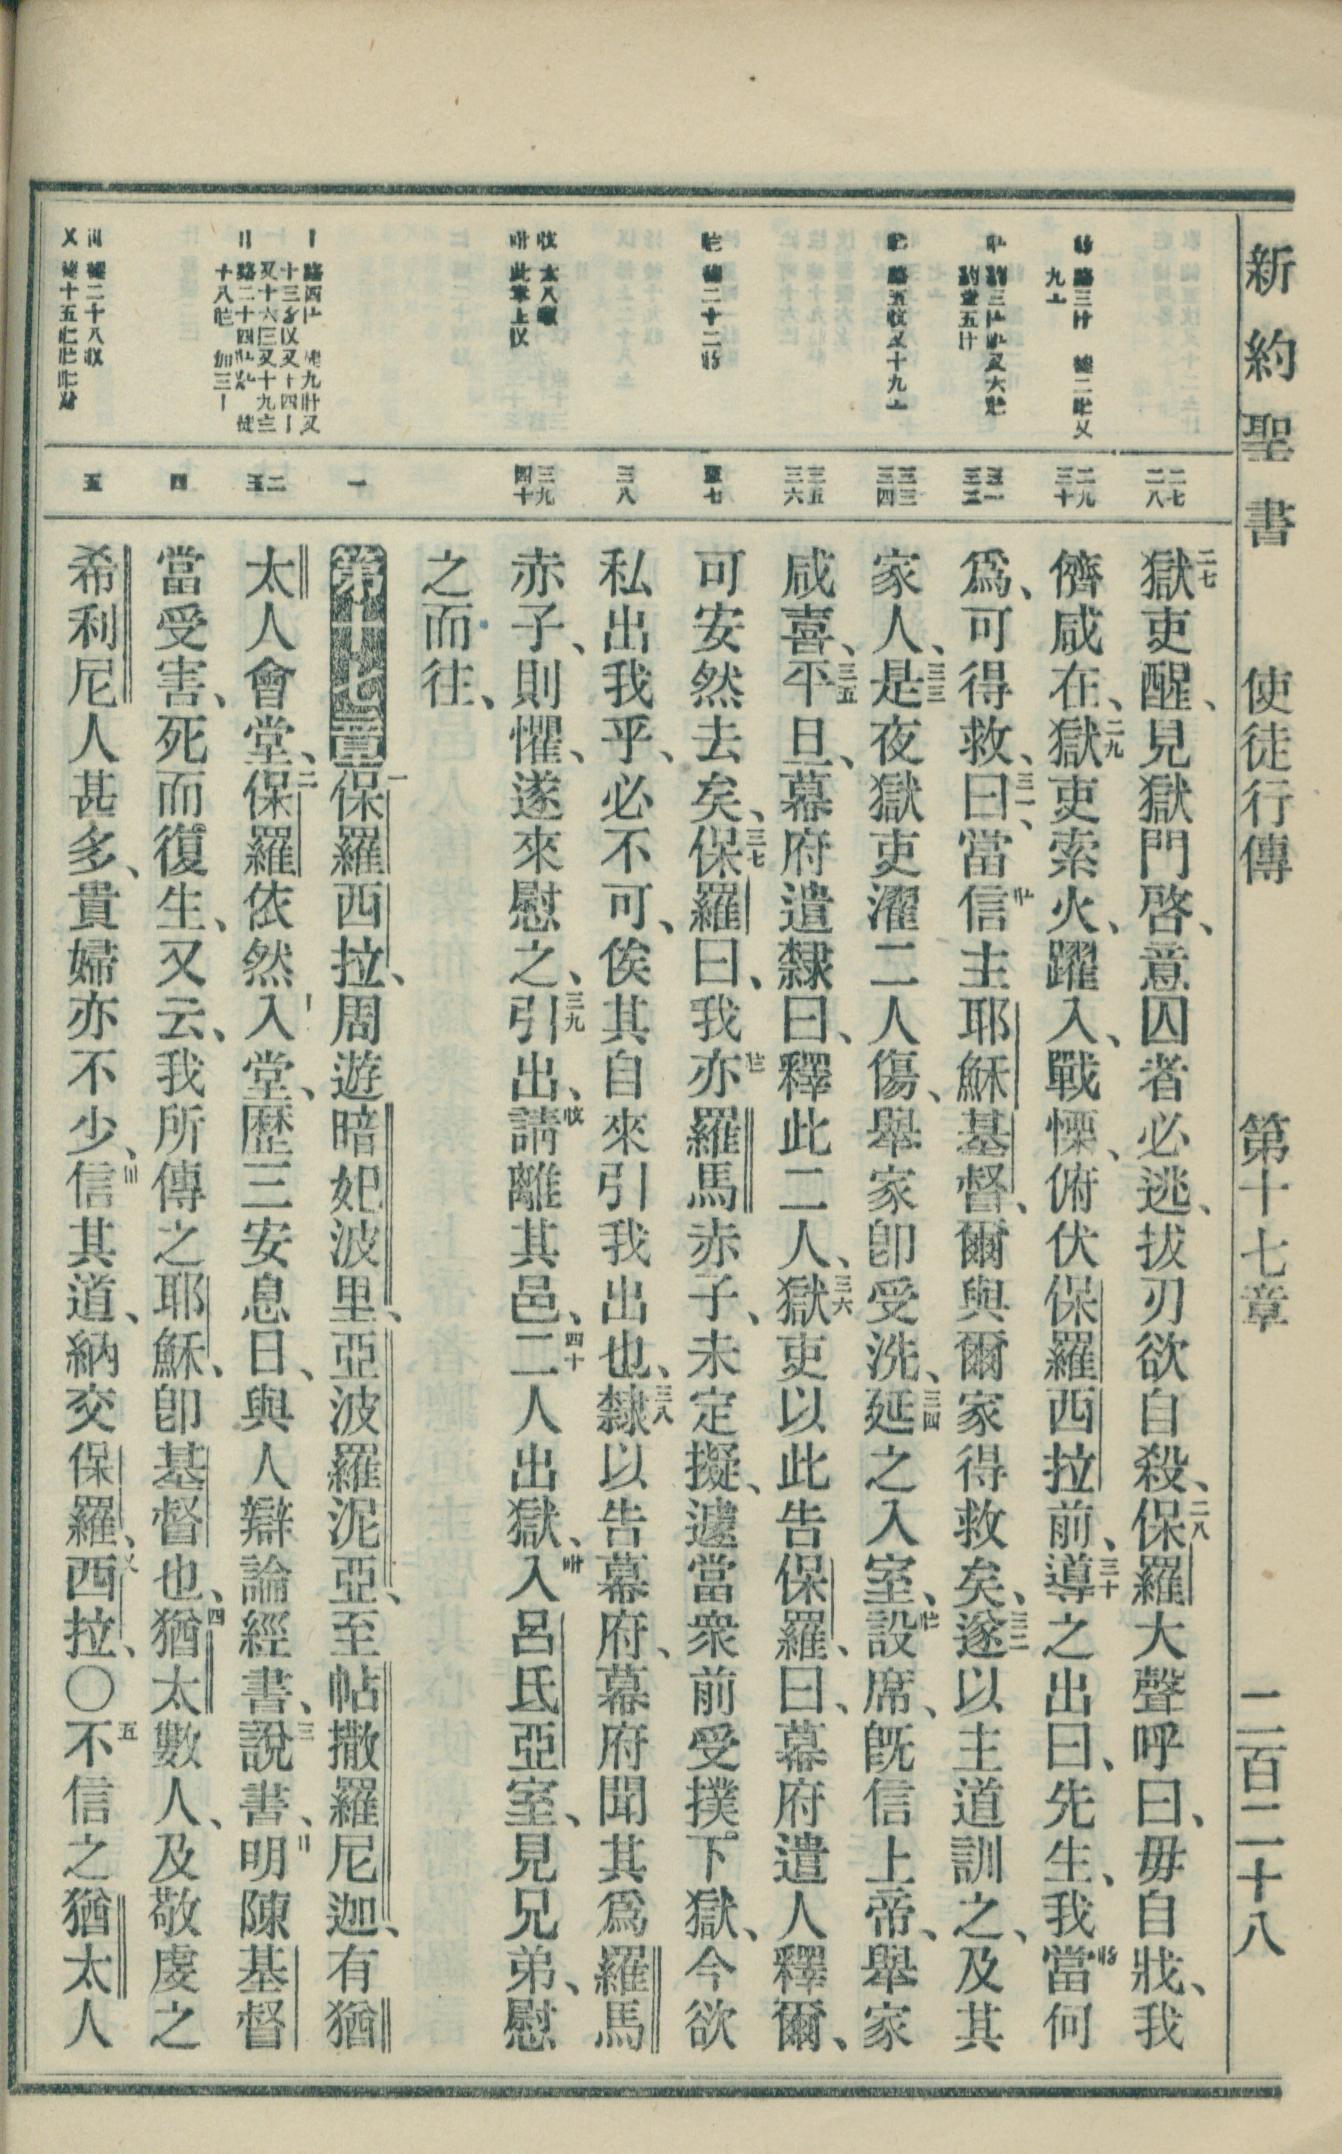 新約聖書　使徒行傳　第十七章　二百二十八
二七 二八
二九 三十
三一 三二
三三 三四
三五 三六
三七
三八
三九 四十
一
二 三
四
五
二七獄吏醒、見獄門啓、意囚者必逃、拔刃欲自殺、二八保羅大聲呼曰、毋自戕、我
儕咸在、二九獄吏索火、躍入、戰慄、俯伏保羅西拉前、三十導之出曰、先生、我當何
爲、可得救、三一曰、當信主耶穌基督、爾與爾家得救矣、三二遂以主道訓之、及其
家人、三三是夜獄吏濯二人傷、舉家卽受洗、三四延之入室、設席、旣信上帝、舉家
咸喜、三五平旦、幕府遣隸曰、釋此二人、三六獄吏以此告保羅、曰、幕府遣人釋爾、
可安然去矣、三七保羅曰、我亦羅馬赤子、未定擬、遽當衆前受撲。下獄、今欲
私出我乎、必不可、俟其自來引我出也、三八隸以告幕府、幕府聞其爲羅馬
赤子、則懼、遂來慰之、三九引出、請離其邑、四十二人出獄、入呂氐亞室、見兄弟、慰
之而往、
第十七章 一保羅西拉、周遊暗妃波里、亞波羅泥亞、至帖撒羅尼迦、有猶
太人會堂、二保羅依然入堂、歷三安息日、與人辯論經書、三說書、明陳基督
當受害、死而復生、又云、我所傳之耶穌、卽基督也、四猶太數人、及敬虔之
希利尼人甚多、貴婦亦不少、信其道、納交保羅、西拉、〇五不信之猶太人